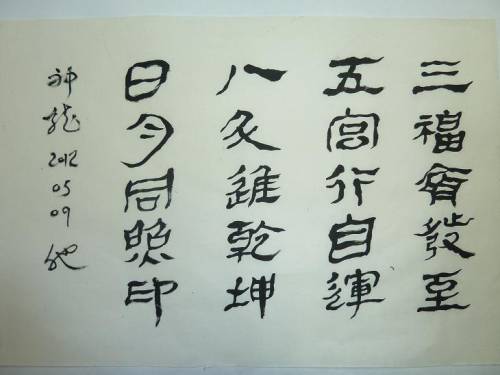 三福會發至
五宮行自運
八爻進乾坤
日月同照印
神龍 2012 05 09